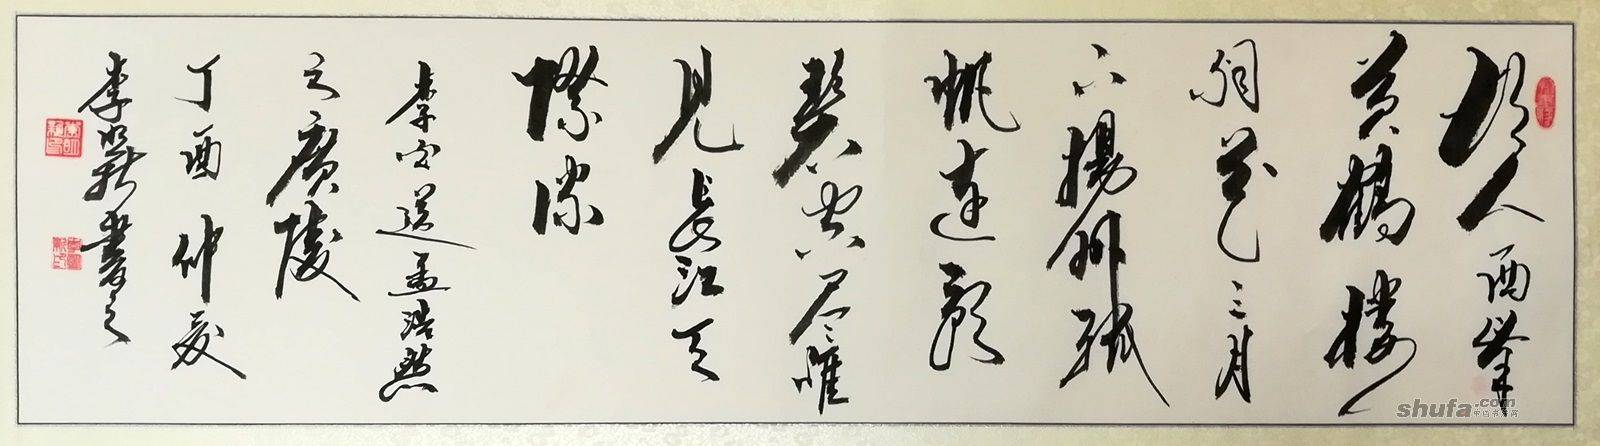 故人西辞
黄鶴樓
烟花三月
下揚州孤
帆遠影
碧空尽惟
見長江天
際流
李白送孟浩然
之廣陵
丁酉仲夏
李書之
shufa.com